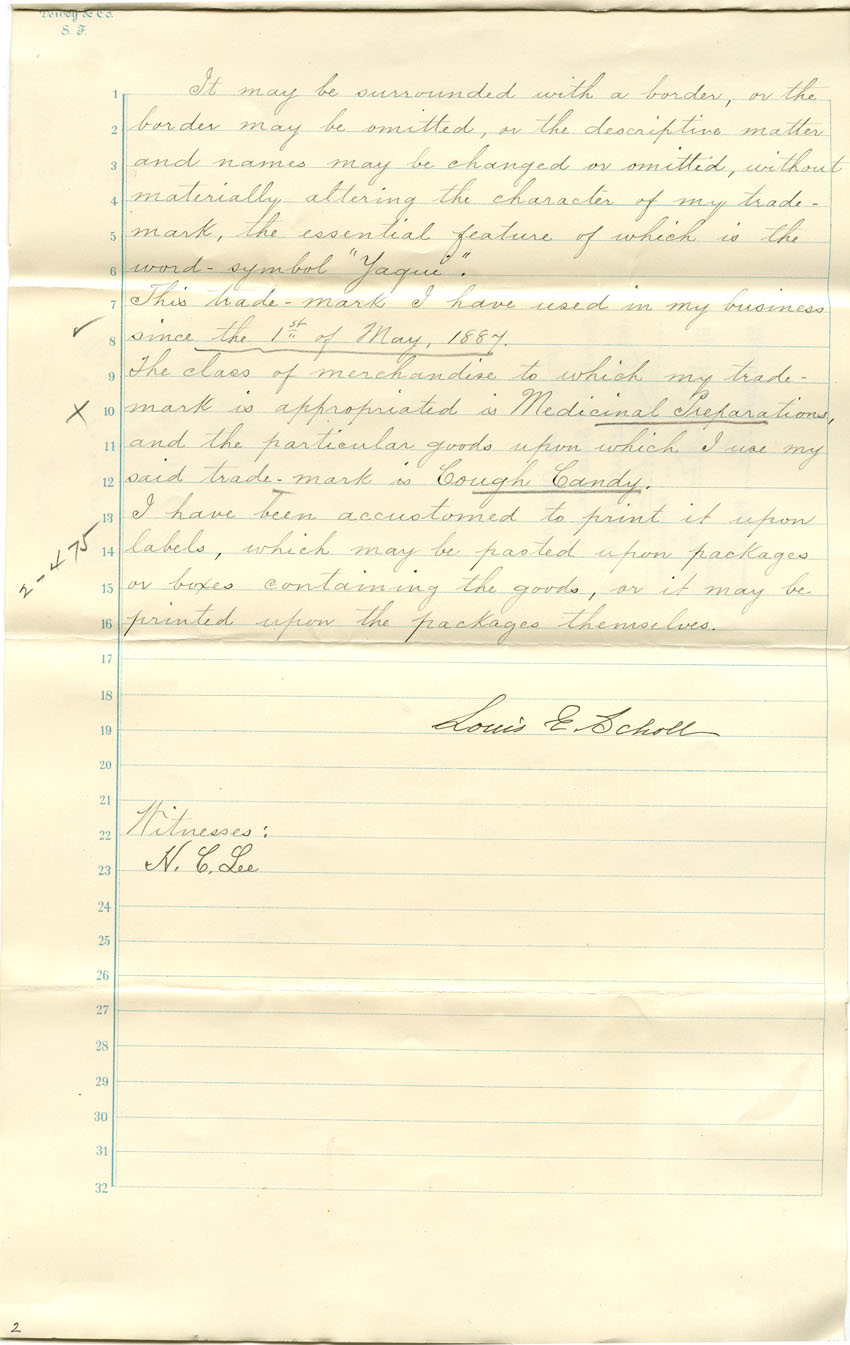 Dewey & Co.
S. F.
1 It may be surrounded with a border, or the
2 border may be omitted, or the descriptive matter
3 and names may be changed or omitted, without
4 materially altering the character of my trade-
5 mark, the essential feature of which is the
6 word-symbol "Yaqui".
7 This trade-mark I have used in my business
✓ 8 since the 1st of May, 1887.
9 The class of merchandise to which my trade-
X 10 mark is appropriated is Medicinal Preparations,
11 and the particular goods upon which I use my
12 said trade-mark is Cough Candy.
13 I have been accustomed to print it upon
2-475
14 labels, which may be pasted upon packages
15 or boxes containing the goods, or it may be
16 printed upon the packages themselves.
17
18
19 Louis E. Scholl
20
21
22 Witnesses:
23 H. C. Lee
24
25
26
27
28
29
30
31
32
2